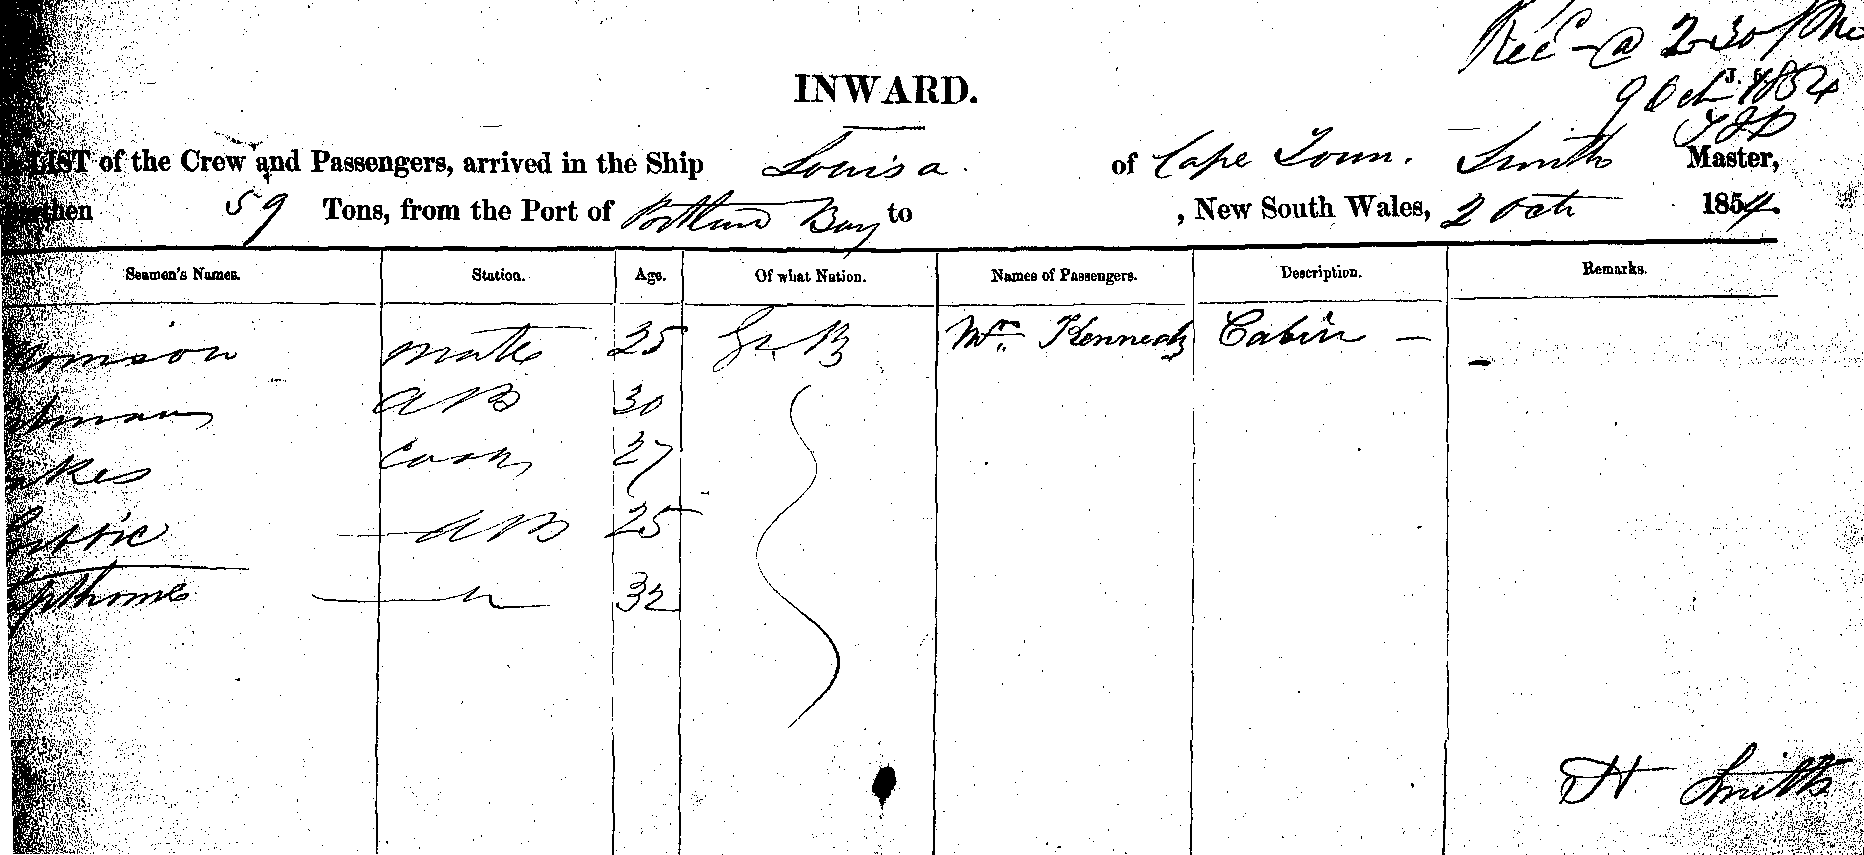 Rec @ 2-30 PM
INWARD.
9 Oct 1854
LIST of the Crew and Passengers, arrived in the Ship Louisa. of Cape Town. Smith Master,
59 Tons, from the Port of Portland Bay to , New South Wales, 2 Oct 1854.
Seamen's Names. Station. Age. Of what Nation. Names of Passengers. Description. Remarks.
mate 25 Gr. B Wm. Kennedy Cabin -
AB 30
Cook 27
AB 25
32
H Smith